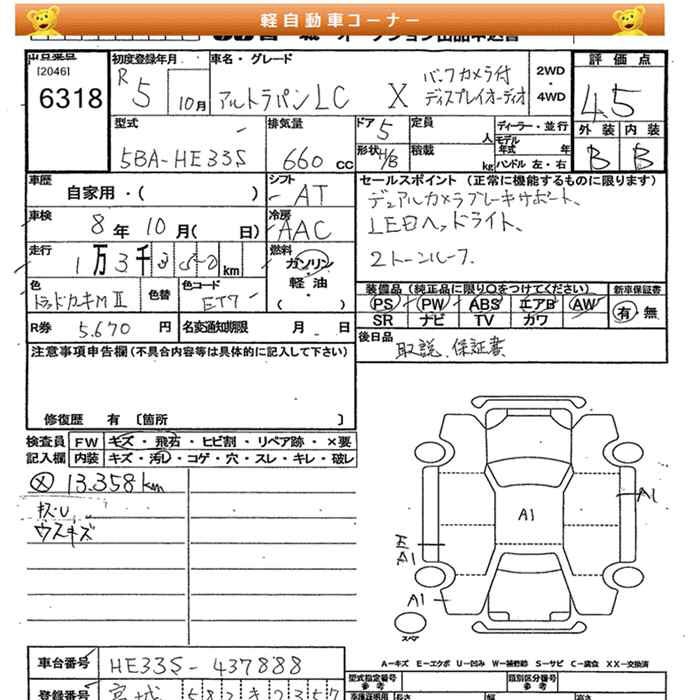 軽自動車コーナー
出品番号
[2046]
6318
初度登録年月
R 5 10月
車名・グレード
アルトラパンLC X
バックカメラ付
ディスプレイオーディオ
2WD
・
4WD
評価点
4.5
外装 内装
B B
型式
5BA-HE33S
排気量
660 CC
ドア 5
形状 4/B
定員 人
積載 kg
ディーラー・並行
モデル
年式 年
ハンドル 左・右
車歴
自家用・( )
シフト
AT
車検
8年10月( 日)
冷房
AAC
走行
1万3千350km
燃料
ガソリン
・
軽油
・
( )
色
色替
色コード
ET7
R券 5.670円
名変通知期限 月 日
セールスポイント (正常に機能するものに限ります)
デュアルカメラブレーキサポート、
LEDヘッドライト、
2トーンルーフ.
装備品 (純正品に限り○をつけてください)
PS PW ABS エアB AW
SR ナビ TV カワ
新車保証書
有・無
後日品
取説、保証書
注意事項申告欄(不具合内容等は具体的に記入して下さい)
修復歴 有 〔箇所 〕
検査員
記入欄
FW キズ・飛石・ヒビ割・リペア跡・×要
内装 キズ・汚レ・コゲ・穴・スレ・キレ・破レ
13.358km
キズ・U
ウスキズ
A1
A1
E
A1
A1
スペア
A－キズ E－エクボ U－凹み W－補修跡 S－サビ C－腐食 XX－交換済
車台番号 HE33S-437888
型式指定番号
参考
類別区分番号
参考
登録番号
長さ
幅
高さ